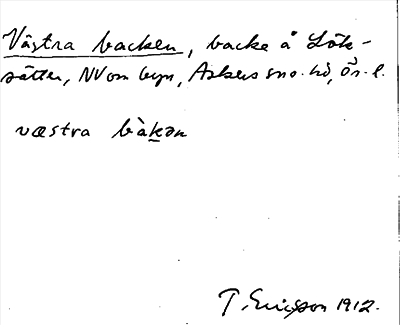 Västra backen, backe å Lök-
sätter, NV om byn, Askers sn o. hd, Ör. l.
væstra bàkən
T. Ericsson 1912.